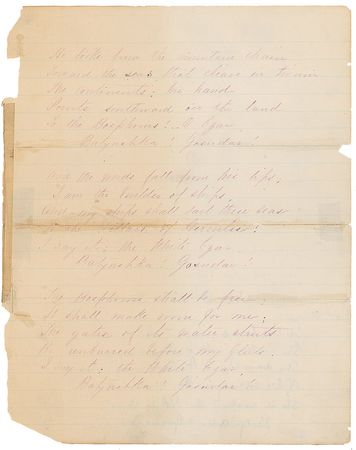 He looks from the mountain chain
Toward the seas that cleave in twain
The continents; his hand
Points southward o'er the land
To the Bosphorus! O Czar,
Batyushka! Gosudar!
And the words fall from his lips;
I am the builder of ships,
And my ships shall sail these seas
To the Pillars of Hercules!
I say it; the White Czar,
Batyushka! Gosudar!
The Bosphorus shall be free;
It shall make room for me;
The gates of its water streets
Be unbarred before my fleets.
I say it; the White Czar,
Batyushka! Gosudar!